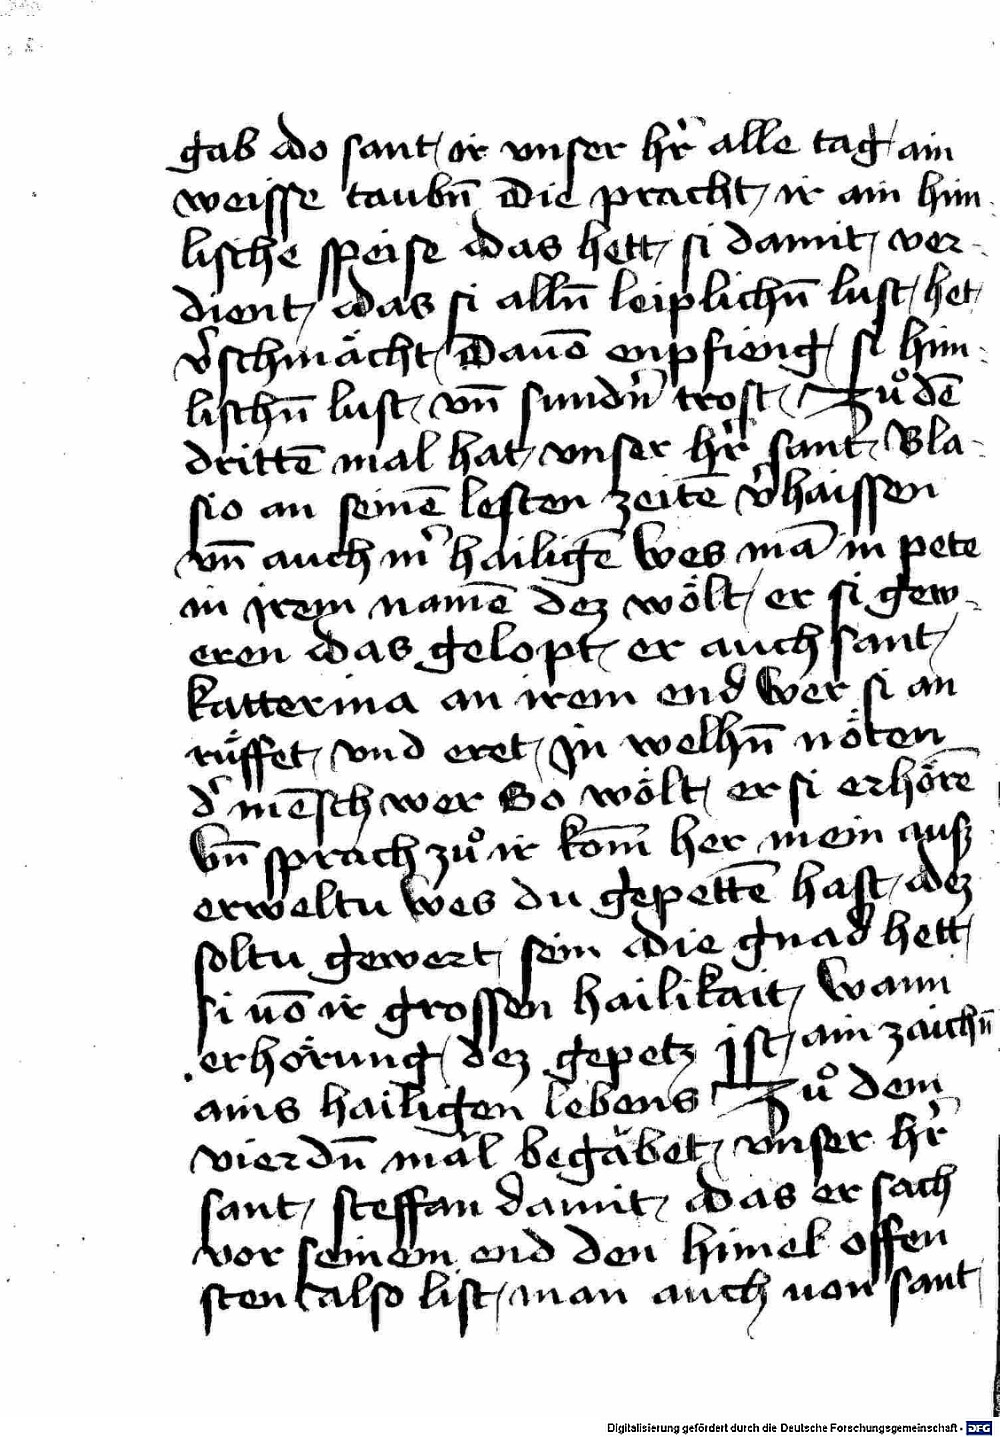 gab do sant ir unser hr̃ alle tag ain
weisse taubn̄ die pracht ir ain him
lische speise das hett si damit ver-
dient das si alln̄ leiplichn̄ lust het
v̉schmächt Dauō enpfieng si him
lischn̄ lust vn̄ sundn̉ trost Zůdē
drittē mal hat vnser hr̃ sant Bla-
sio an seinē lesten zeitē v̉haissen
vn̄ auch mr̉ hailigē wes mā in pete
in jrem namē dez wölt er si gew-
eren das gelopt er auch sant
katterina an irem end wer si an
rüffet vnd eret Jn welhn̄ nöten
d̉ mēsch wer So wölt er si erhörē
vn̄ sprach zů ir kom̄ her mein ausz
erweltu wes du gepettē hast dez
soltu gewert sein die gnad hett
si uō ir grossen hailikait Wann
erhörung dez gepetz jst ain zaichn̄
ains hailigen lebens Zů dem
vierdn̄ mal begabet vnser hr̃
sant steffan damit das er sach
vor seinem end den himel offen
sten also list man auch uon sant
Digitalisierung gefördert durch die Deutsche Forschungsgemeinschaft - DFG